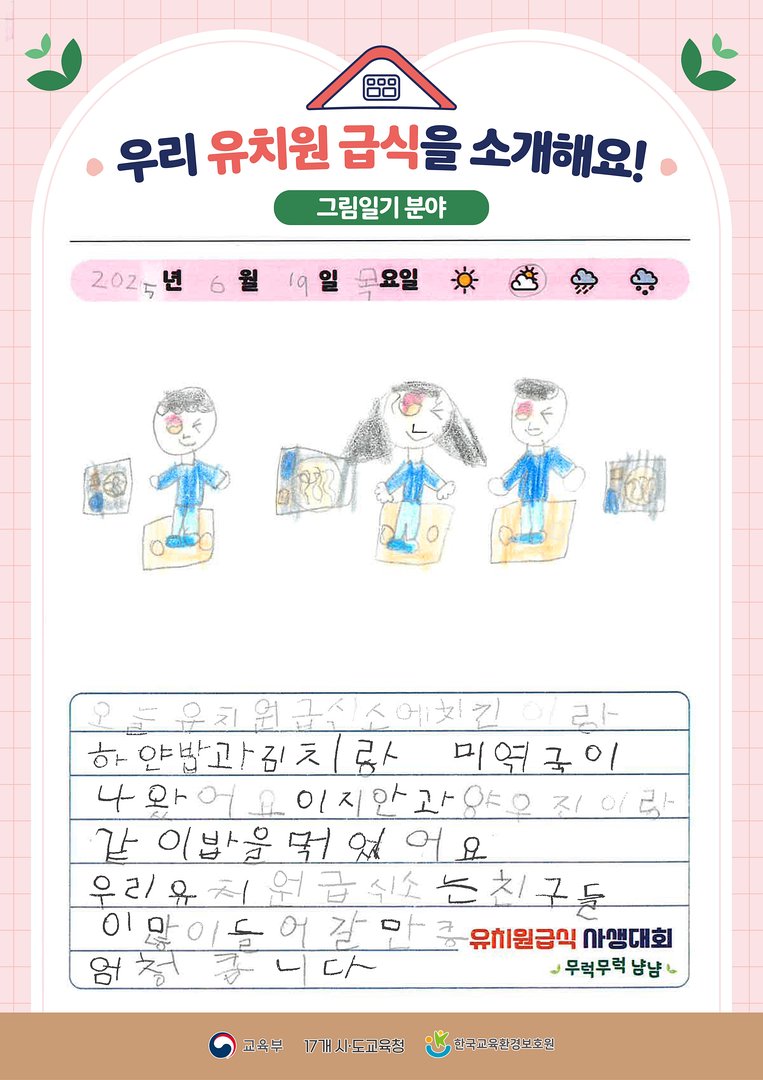 우리 유치원 급식을 소개해요!
그림일기 분야
2025년 6월 19일 목요일
오늘 유치원급식소에치킨이랑
하얀밥과김치랑 미역국이
나왔어요이지안과양우진이랑
같이밥을먹었어요
우리유치원급식소는친구들
이많이들어갈만큼
엄청큽니다
유치원급식 사생대회
무럭무럭 냠냠
교육부 17개 시·도교육청 한국교육환경보호원